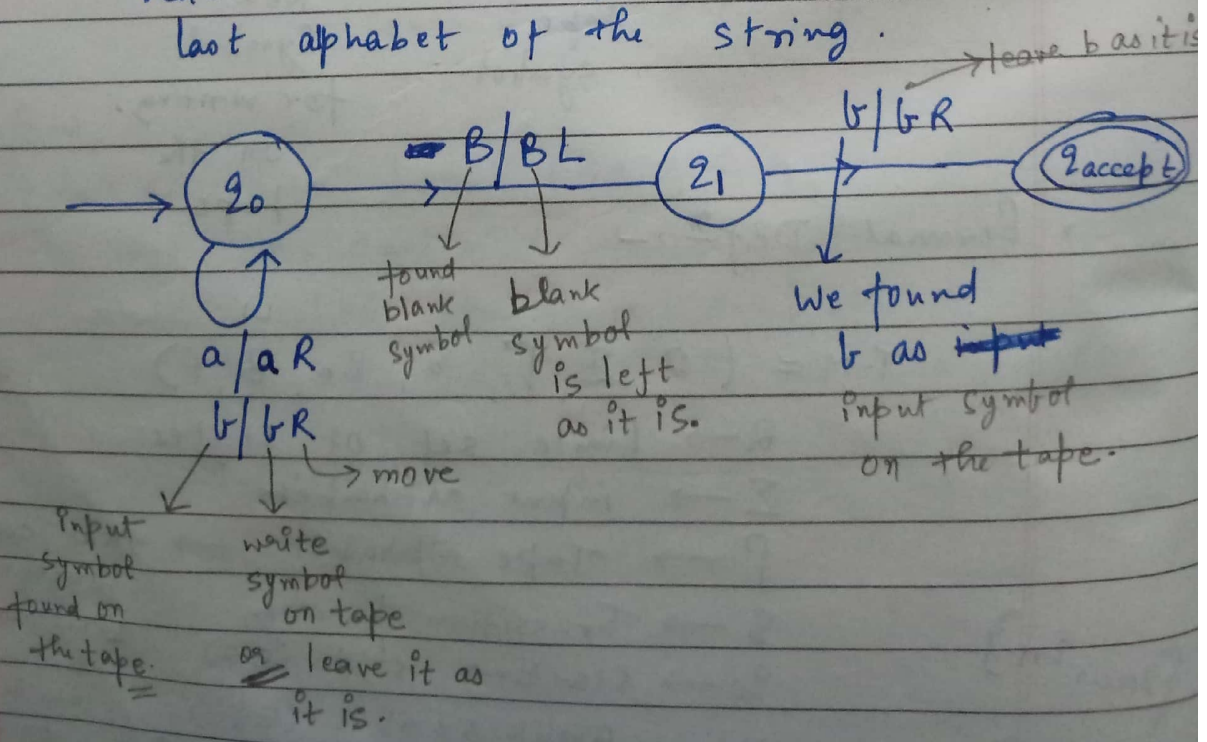 last alphabet of the string.
leave b as it is
b/b R
B/B L
q0
q1
qaccept
found
blank
symbol
blank
symbol
is left
as it is.
We found
b as input
input symbol
on the tape.
a/a R
b/b R
move
input
symbol
found on
the tape.
write
symbol
on tape
or leave it as
it is.